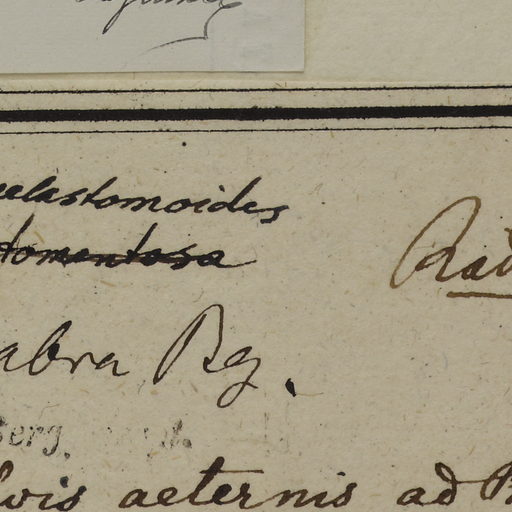 elastomoides
tomentosa
Rad
abra Bg.
Berg.
lvis aeternis ad